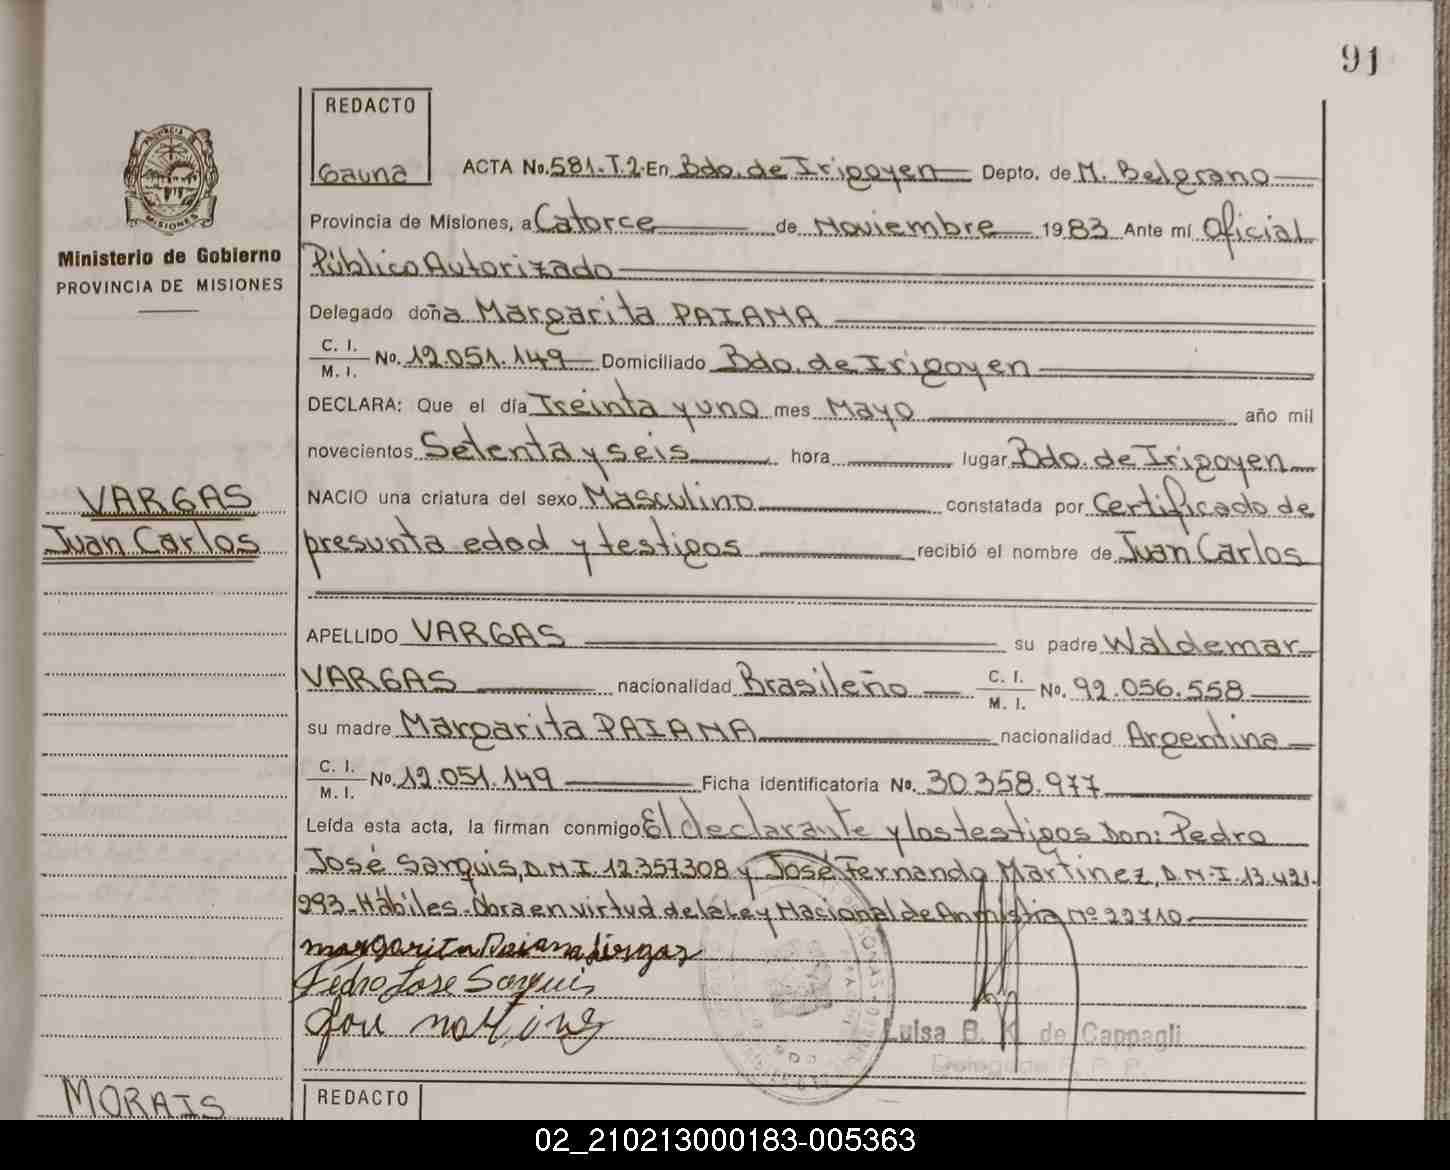 91
REDACTO
Gauna
ACTA No. 581. T. 2. En Bdo. de Irigoyen Depto. de M. Belgrano
PROVINCIA DE
MISIONES
Ministerio de Gobierno
PROVINCIA DE MISIONES
Provincia de Misiones, a Catorce de Noviembre 1983 Ante mí Oficial
Público Autorizado
Delegado doña Margarita PAIANA
C. I.
M. I. No. 12.051.149 Domiciliado Bdo. de Irigoyen
DECLARA: Que el día Treinta y uno mes Mayo año mil
novecientos Setenta y seis hora lugar Bdo. de Irigoyen
NACIO una criatura del sexo Masculino constatada por Certificado de
VARGAS
Juan Carlos
presunta edad y testigos recibió el nombre de Juan Carlos
APELLIDO VARGAS su padre Waldemar
VARGAS nacionalidad Brasileño C. I.
M. I. No. 92.056.558
su madre Margarita PAIANA nacionalidad Argentina
C. I.
M. I. No. 12.051.149 Ficha identificatoria No. 30.358.977
Leída esta acta, la firman conmigo El declarante y los testigos Don: Pedro
José Sarquis, D.N.I. 12.357308 y José Fernando Martinez, D.N.I. 13.421.
293. Hábiles. Obra en virtud de la Ley Nacional de Amnistia nº 22710
Margarita Paiana
Pedro Jose Sarquis
Luisa B. K. de Cappagli
Delegada R. P. P.
MORAIS
REDACTO
02_210213000183-005363